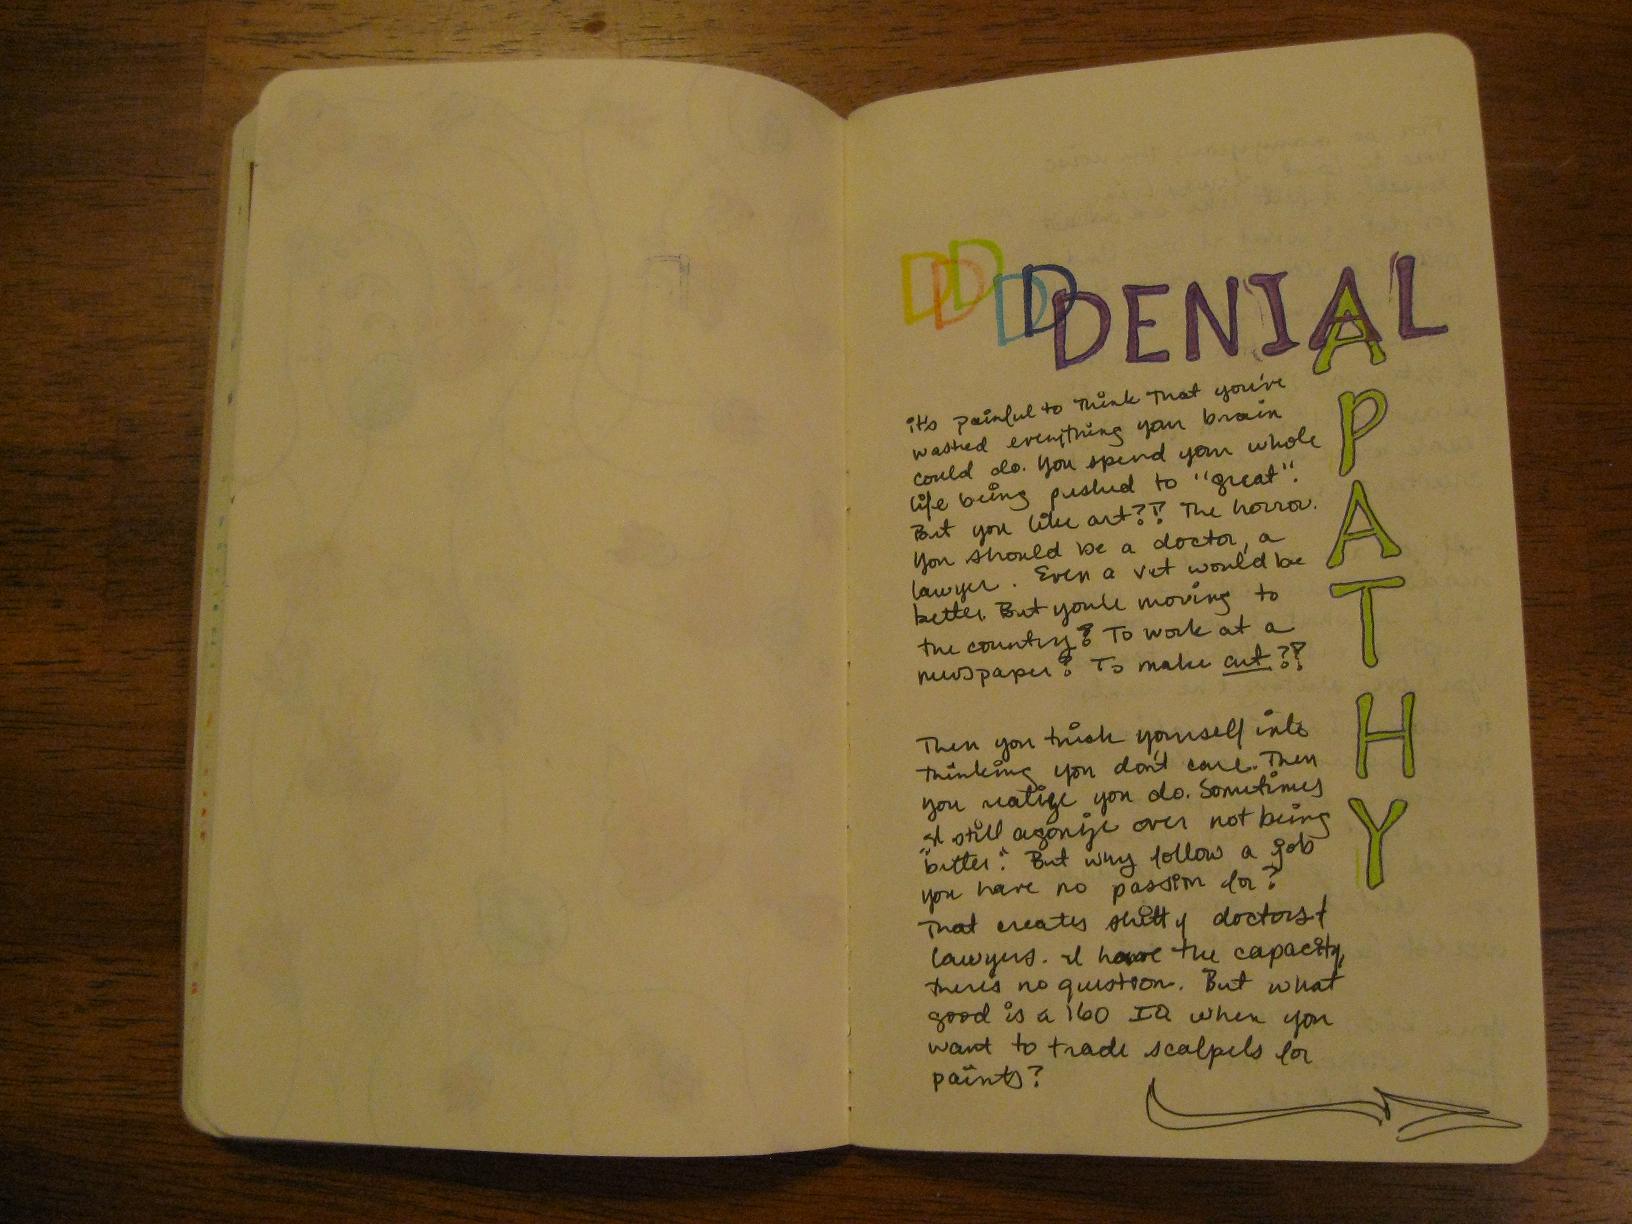 D D D D D DENIAL
APATHY
it's painful to think that you've
wasted everything your brain
could do. You spend your whole
life being pushed to "great".
But you like art?! The horror.
You should be a doctor, a
lawyer. Even a vet would be
better. But you're moving to
the country? To work at a
newspaper? To make art??
Then you trick yourself into
thinking you don't care. Then
you realize you do. Sometimes
I still agonize over not being
"better". But why follow a job
you have no passion for?
That creates shitty doctors &
lawyers. I have the capacity,
there's no question. But what
good is a 160 IQ when you
want to trade scalpels for
paints?